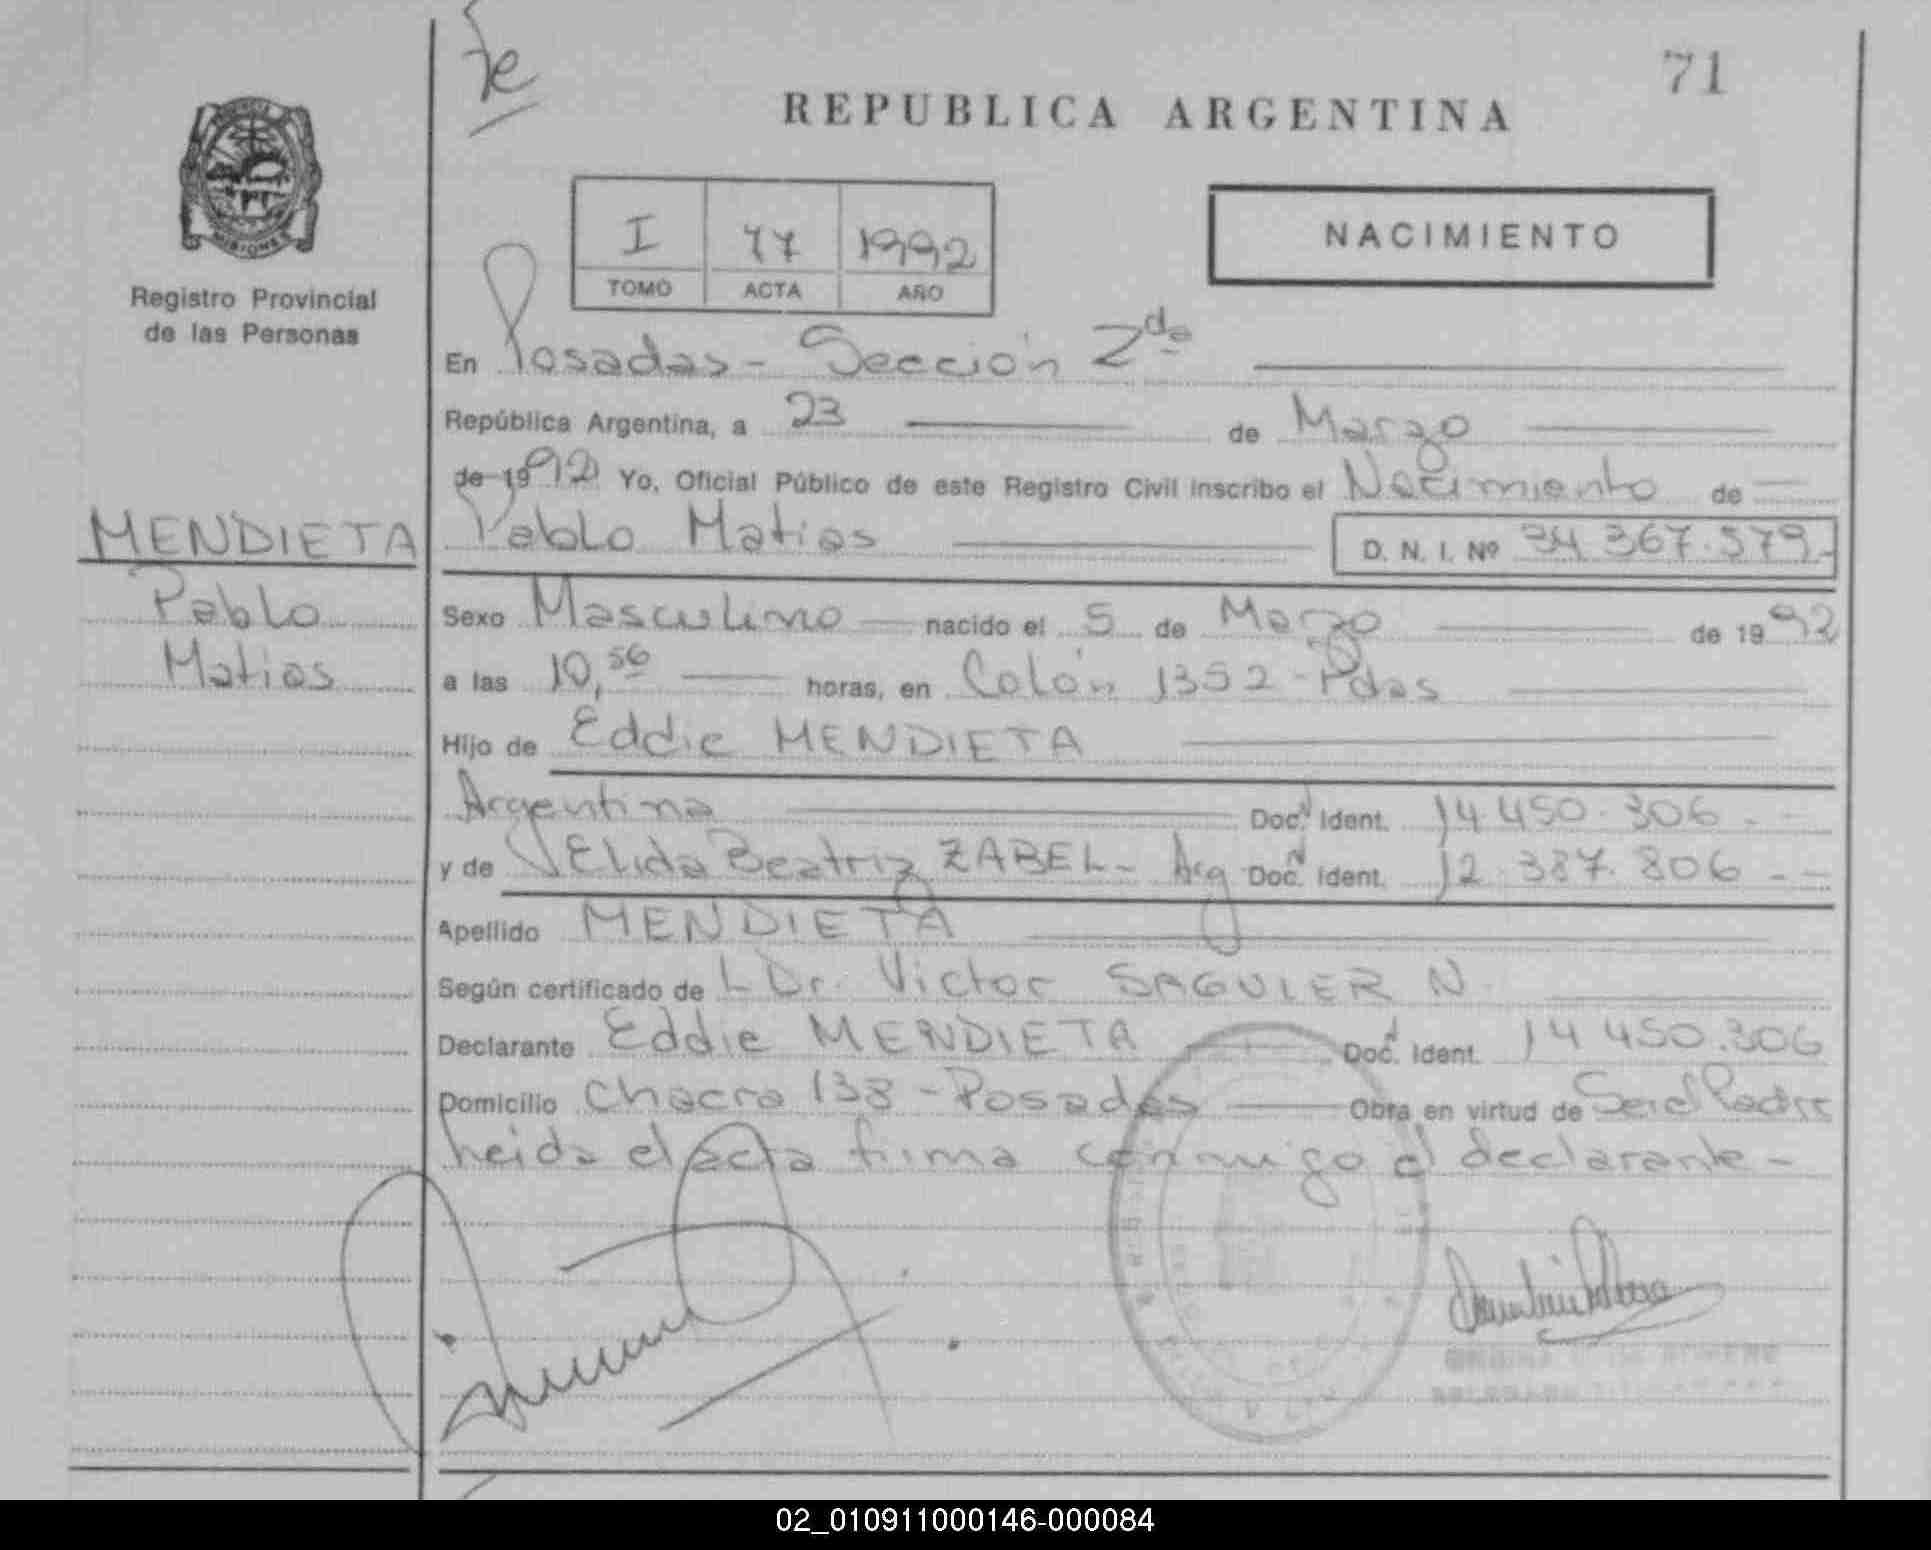 71
REPUBLICA ARGENTINA
MISIONES
Registro Provincial
de las Personas
I 77 1992
TOMO ACTA AÑO
NACIMIENTO
En Posadas - Sección 2da
República Argentina, a 23 de Marzo
de 1992 Yo, Oficial Público de este Registro Civil inscribo el Nacimiento de
MENDIETA
Pablo
Matias
Pablo Matias D. N. I. Nº 34 367.579.-
Sexo Masculino nacido el 5 de Marzo de 1992
a las 10,56 horas, en Colón 1352 - Pdas
Hijo de Eddie MENDIETA
Argentina Doc. Ident. 14 450.306.-
y de Elida Beatriz ZABEL - Arg Doc. Ident. 12.387.806 - -
Apellido MENDIETA
Según certificado de Dr. Victor SAGUIER N.
Declarante Eddie MENDIETA Doc. Ident. 14 450.306
Domicilio Chacra 138 - Posadas Obra en virtud de Ser el Padre
heida el acta firma conmigo el declarante -
02_010911000146-000084